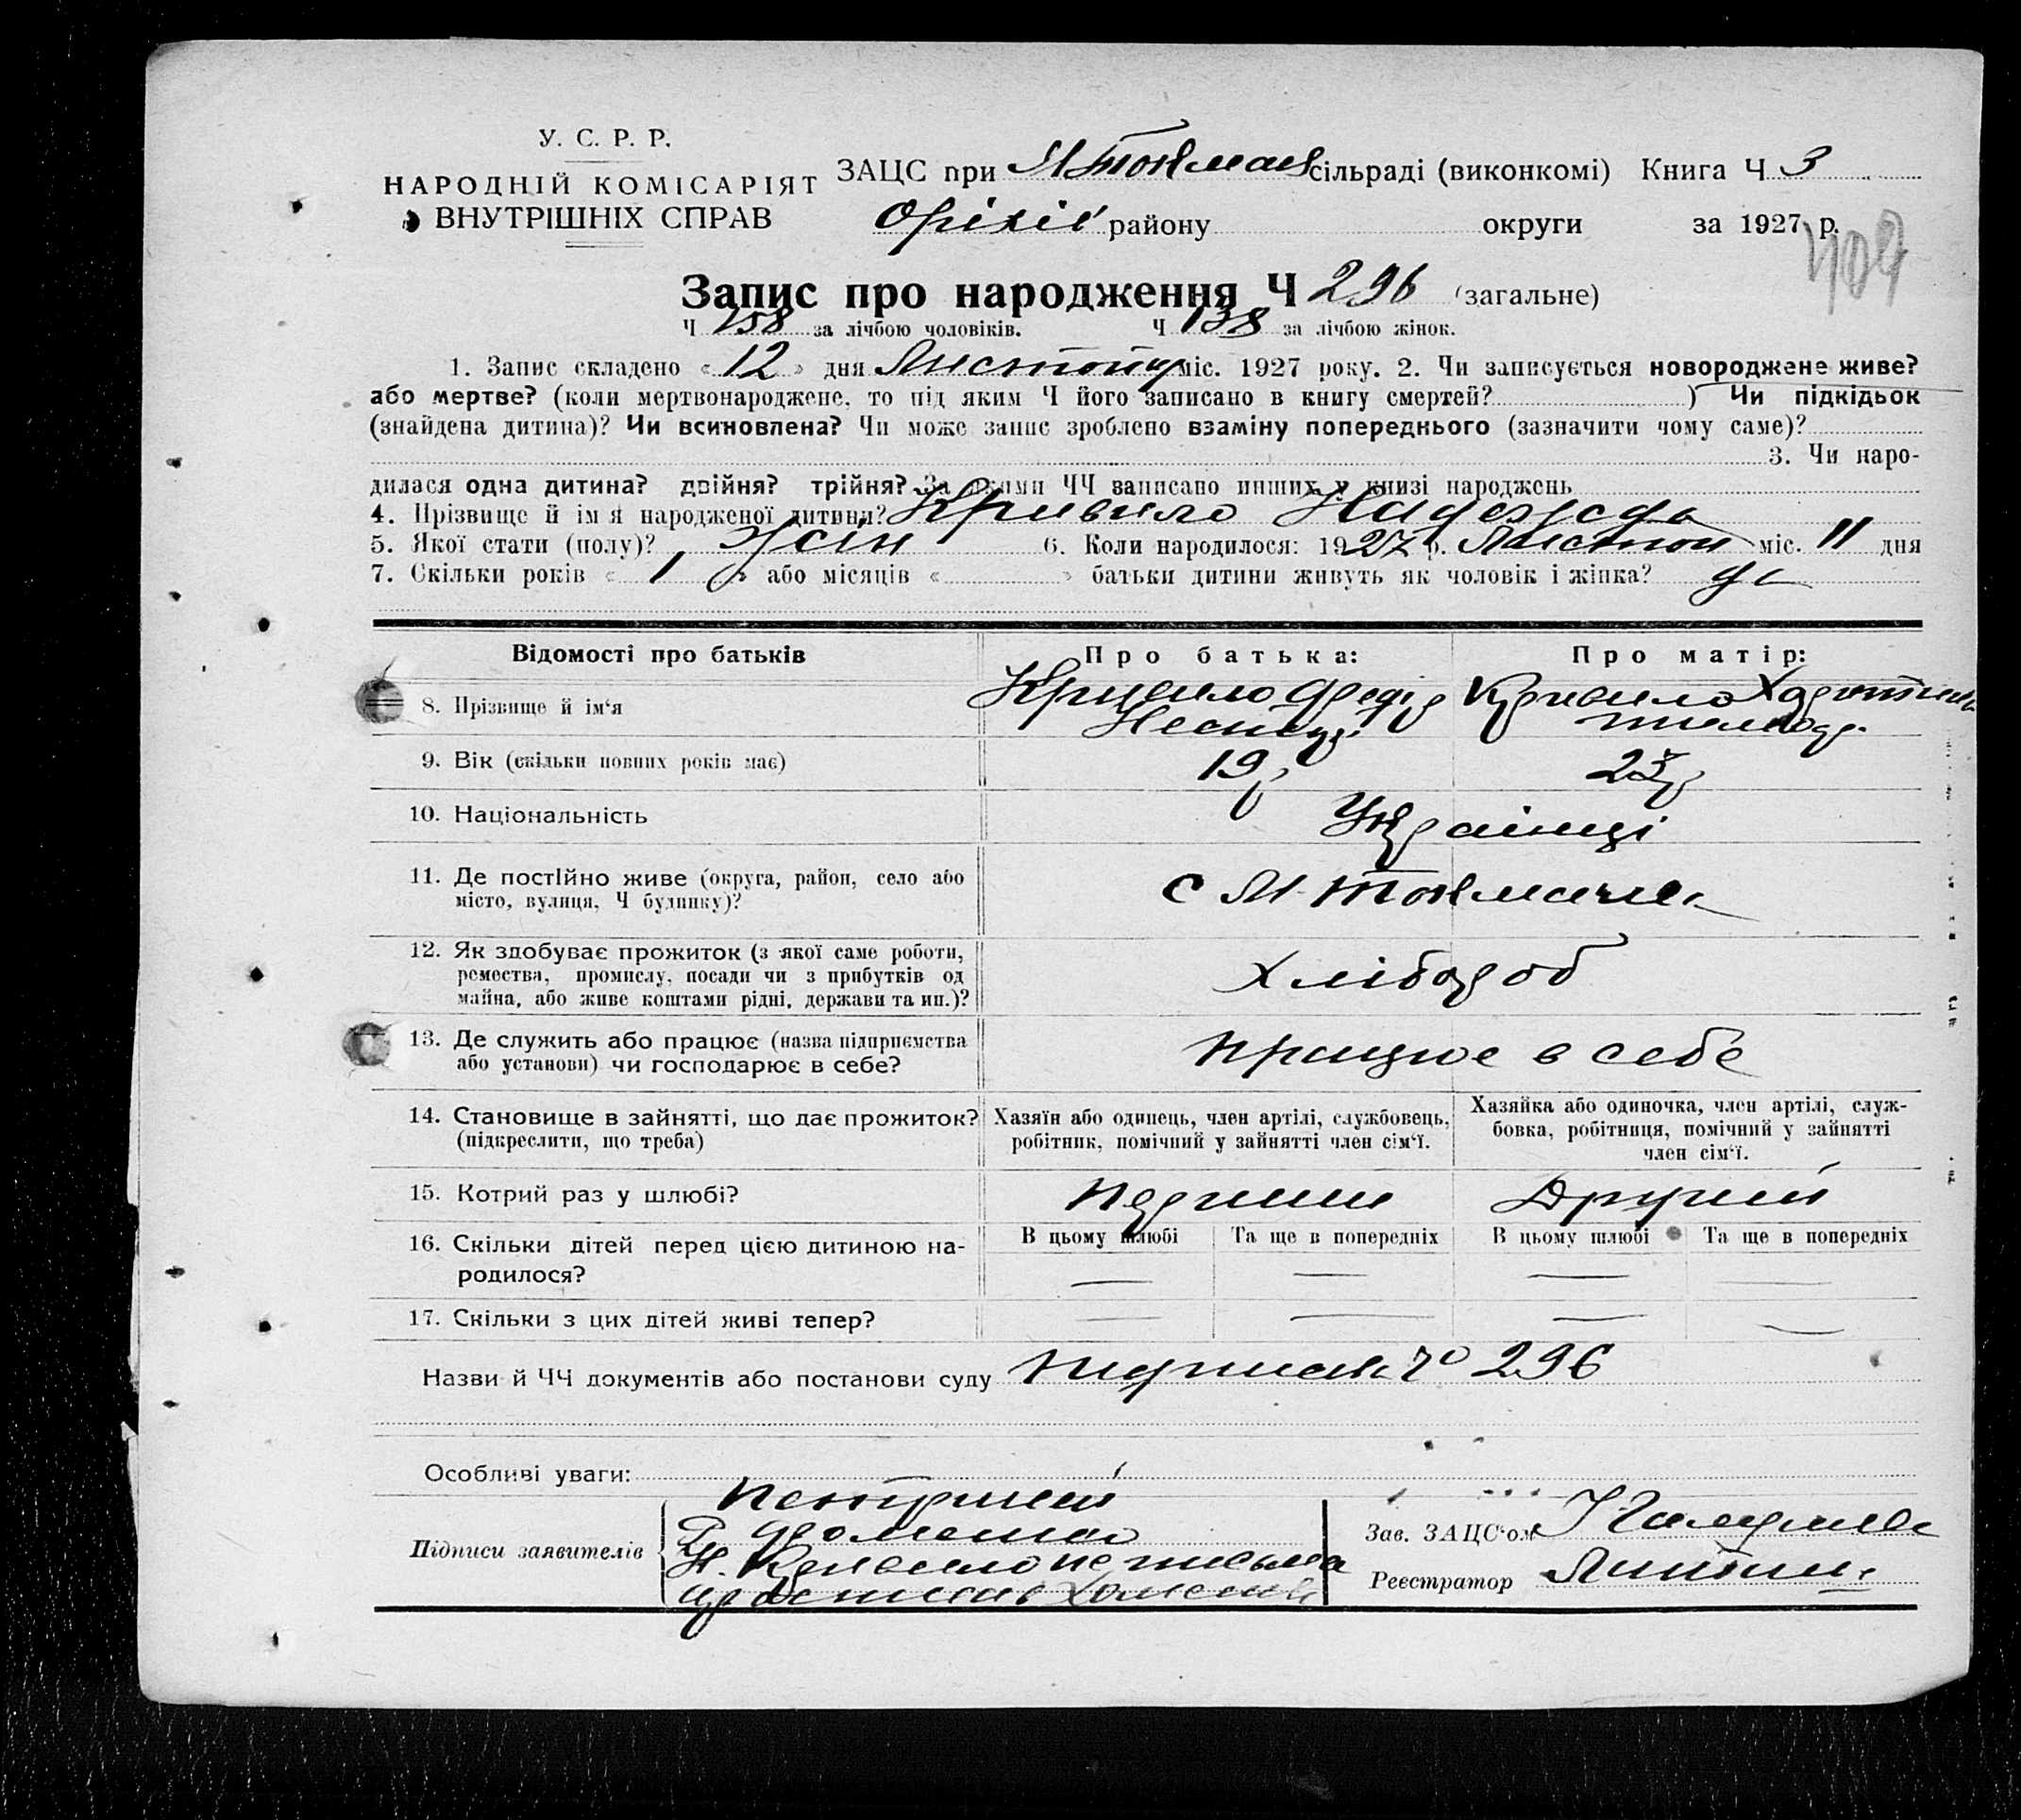 У. С. Р. Р.
НАРОДНІЙ КОМІСАРІЯТ
ВНУТРІШНІХ СПРАВ
ЗАЦС при М Токмач сільраді (виконкомі) Книга Ч 3
Оріхів району округи за 1927 р.
Запис про народження Ч 296 (загальне)
Ч 158 за лічбою чоловіків. Ч 138 за лічбою жінок.
1. Запис складено « 12 » дня Листопад міс. 1927 року. 2. Чи записується новороджене живе?
або мертве? (коли мертвонароджене, то під яким Ч його записано в книгу смертей? ) Чи підкідьок
(знайдена дитина)? Чи всиновлена? Чи може запис зроблено взаміну попереднього (зазначити чому саме)?
3. Чи наро-
дилася одна дитина? двійня? трійня? За якими ЧЧ записано инших у книзі народжень
4. Прізвище й ім'я народженої дитини? Кривило Надежда
5. Якої стати (полу)? жін 6. Коли народилося: 1927 р. Листоп міс. 11 дня
7. Скільки років « 1 » або місяців « » батьки дитини живуть як чоловік і жінка? да
Відомості про батьків
Про батька:
Про матір:
8. Прізвище й ім'я
Кривило
Кривило
9. Вік (скільки повних років має)
19
10. Національність
Українці
11. Де постійно живе (округа, район, село або
місто, вулиця, Ч будинку)?
с М-Токмачка
12. Як здобуває прожиток (з якої саме роботи,
ремества, промислу, посади чи з прибутків од
майна, або живе коштами рідні, держави та ин.)?
Хлібороб
13. Де служить або працює (назва підприємства
або установи) чи господарює в себе?
працює в себе
14. Становище в зайнятті, що дає прожиток?
(підкреслити, що треба)
Хазяїн або одинець, член артілі, службовець,
робітник, помічний у зайнятті член сім'ї.
Хазяйка або одиночка, член артілі, служ-
бовка, робітниця, помічний у зайнятті
член сім'ї.
15. Котрий раз у шлюбі?
Перший
Другий
16. Скільки дітей перед цією дитиною на-
родилося?
В цьому шлюбі Та ще в попередніх
В цьому шлюбі Та ще в попередніх
17. Скільки з цих дітей живі тепер?
Назви й ЧЧ документів або постанови суду 296
Особливі уваги:
Підписи заявителів
Н. Кривило
Зав. ЗАЦС'ом
Реєстратор